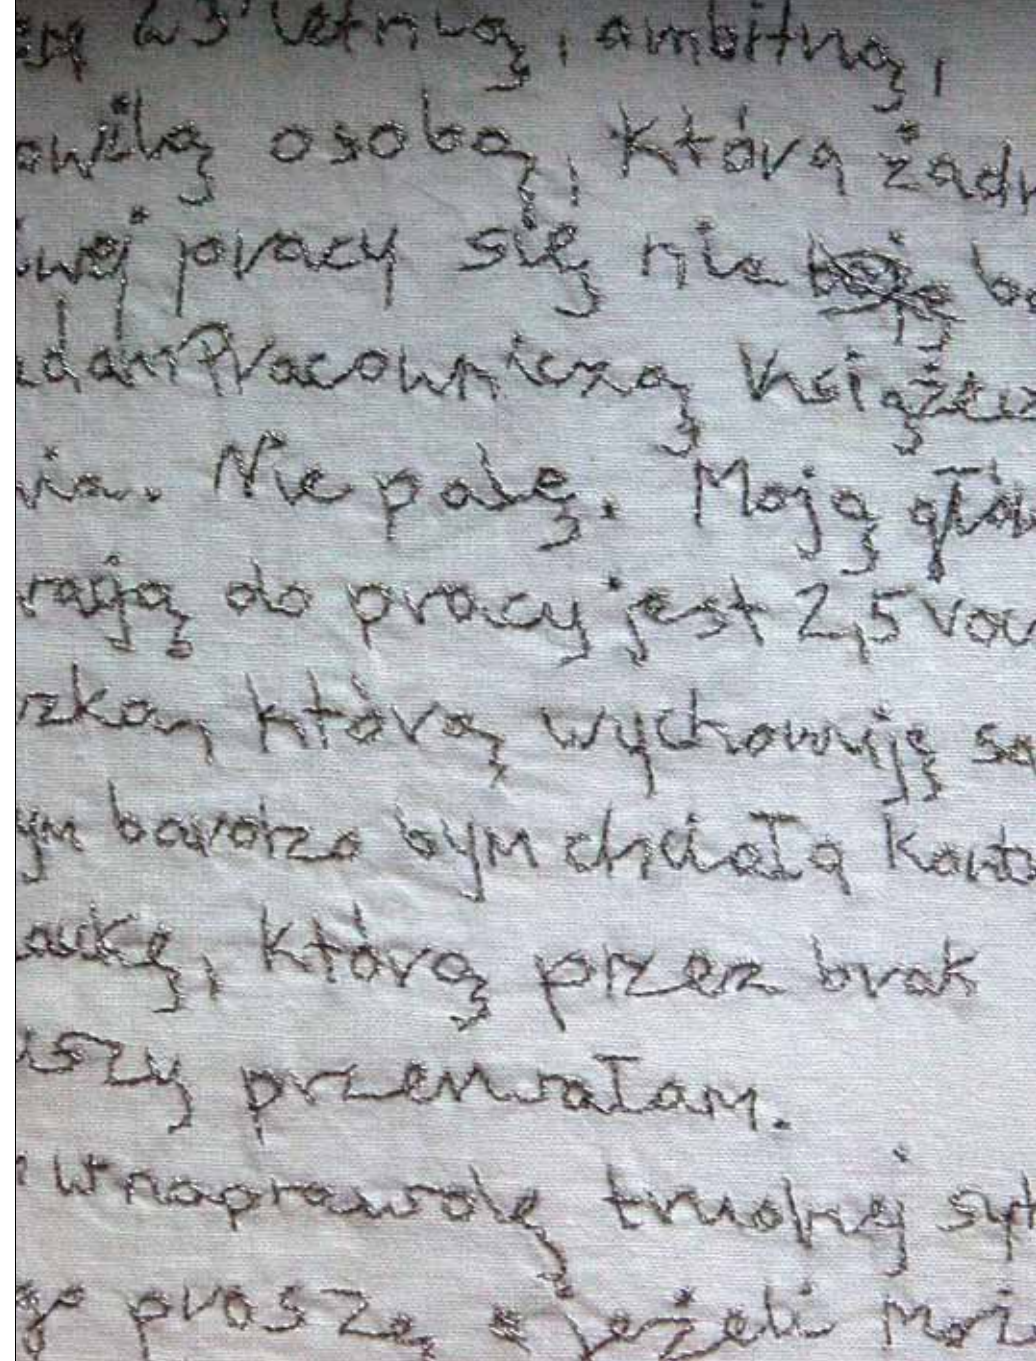 23 letnią, ambitną,
osobą, którą żadn
pracy się nie boję b
adam Pracowniczą książecz
nia. Nie palę. Moją głów
racją do pracy jest 2,5 roc
którą wychowuję sa
ym bardzo bym chciałą konty
aukę, którą przez brak
uszy przerwałam.
w naprawdę trudnej syt
go proszę jeżeli moż